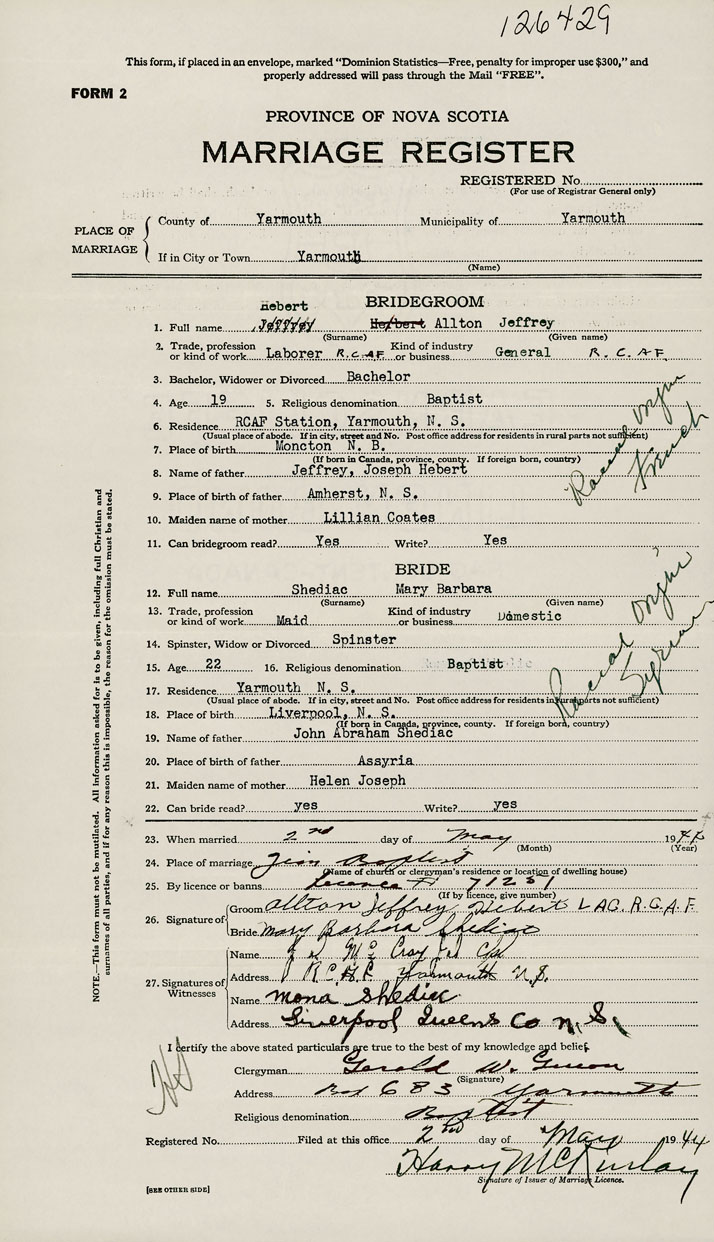 126429
This form, if placed in an envelope, marked "Dominion Statistics—Free, penalty for improper use $300," and
properly addressed will pass through the Mail "FREE".
FORM 2
PROVINCE OF NOVA SCOTIA
MARRIAGE REGISTER
REGISTERED No.
(For use of Registrar General only)
PLACE OF MARRIAGE
County of Yarmouth Municipality of Yarmouth
If in City or Town Yarmouth
(Name)
BRIDEGROOM
Hebert
1. Full name Jeffrey Herbert Allton Jeffrey
(Surname) (Given name)
2. Trade, profession or kind of work Laborer R.C.A.F. Kind of industry or business General R.C.A.F.
3. Bachelor, Widower or Divorced Bachelor
4. Age 19 5. Religious denomination Baptist
6. Residence RCAF Station, Yarmouth, N. S.
(Usual place of abode. If in city, street and No. Post office address for residents in rural parts not sufficient)
7. Place of birth Moncton N. B.
(If born in Canada, province, county. If foreign born, country)
8. Name of father Jeffrey, Joseph Hebert
9. Place of birth of father Amherst, N. S.
10. Maiden name of mother Lillian Coates
11. Can bridegroom read? Yes Write? Yes
Racial Origin
French
BRIDE
12. Full name Shediac Mary Barbara
(Surname) (Given name)
13. Trade, profession or kind of work Maid Kind of industry or business Domestic
14. Spinster, Widow or Divorced Spinster
15. Age 22 16. Religious denomination Baptist
17. Residence Yarmouth N. S.
(Usual place of abode. If in city, street and No. Post office address for residents in rural parts not sufficient)
18. Place of birth Liverpool, N. S.
(If born in Canada, province, county. If foreign born, country)
19. Name of father John Abraham Shediac
20. Place of birth of father Assyria
21. Maiden name of mother Helen Joseph
22. Can bride read? yes Write? yes
Racial Origin
Syrian
23. When married 2nd day of May 1944
(Month) (Year)
24. Place of marriage Baptist
(Name of church or clergyman's residence or location of dwelling house)
25. By licence or banns Licence # 71251
(If by licence, give number)
26. Signature of
Groom Allton Jeffrey Hebert LAC. R.C.A.F.
Bride Mary Barbara Shediac
27. Signatures of Witnesses
Name
Address R.C.A.F. Yarmouth N.S.
Name Mona Shediac
Address Liverpool Queens Co N.S.
I certify the above stated particulars are true to the best of my knowledge and belief.
Clergyman Gerald W.
(Signature)
Address Box 683 Yarmouth
Religious denomination Baptist
Registered No. Filed at this office 2nd day of May 1944
Harry McKinlay
Signature of Issuer of Marriage Licence.
[SEE OTHER SIDE]
NOTE.—This form must not be mutilated. All information asked for is to be given, including full Christian and
surnames of all parties, and if for any reason this is impossible, the reason for the omission must be stated.